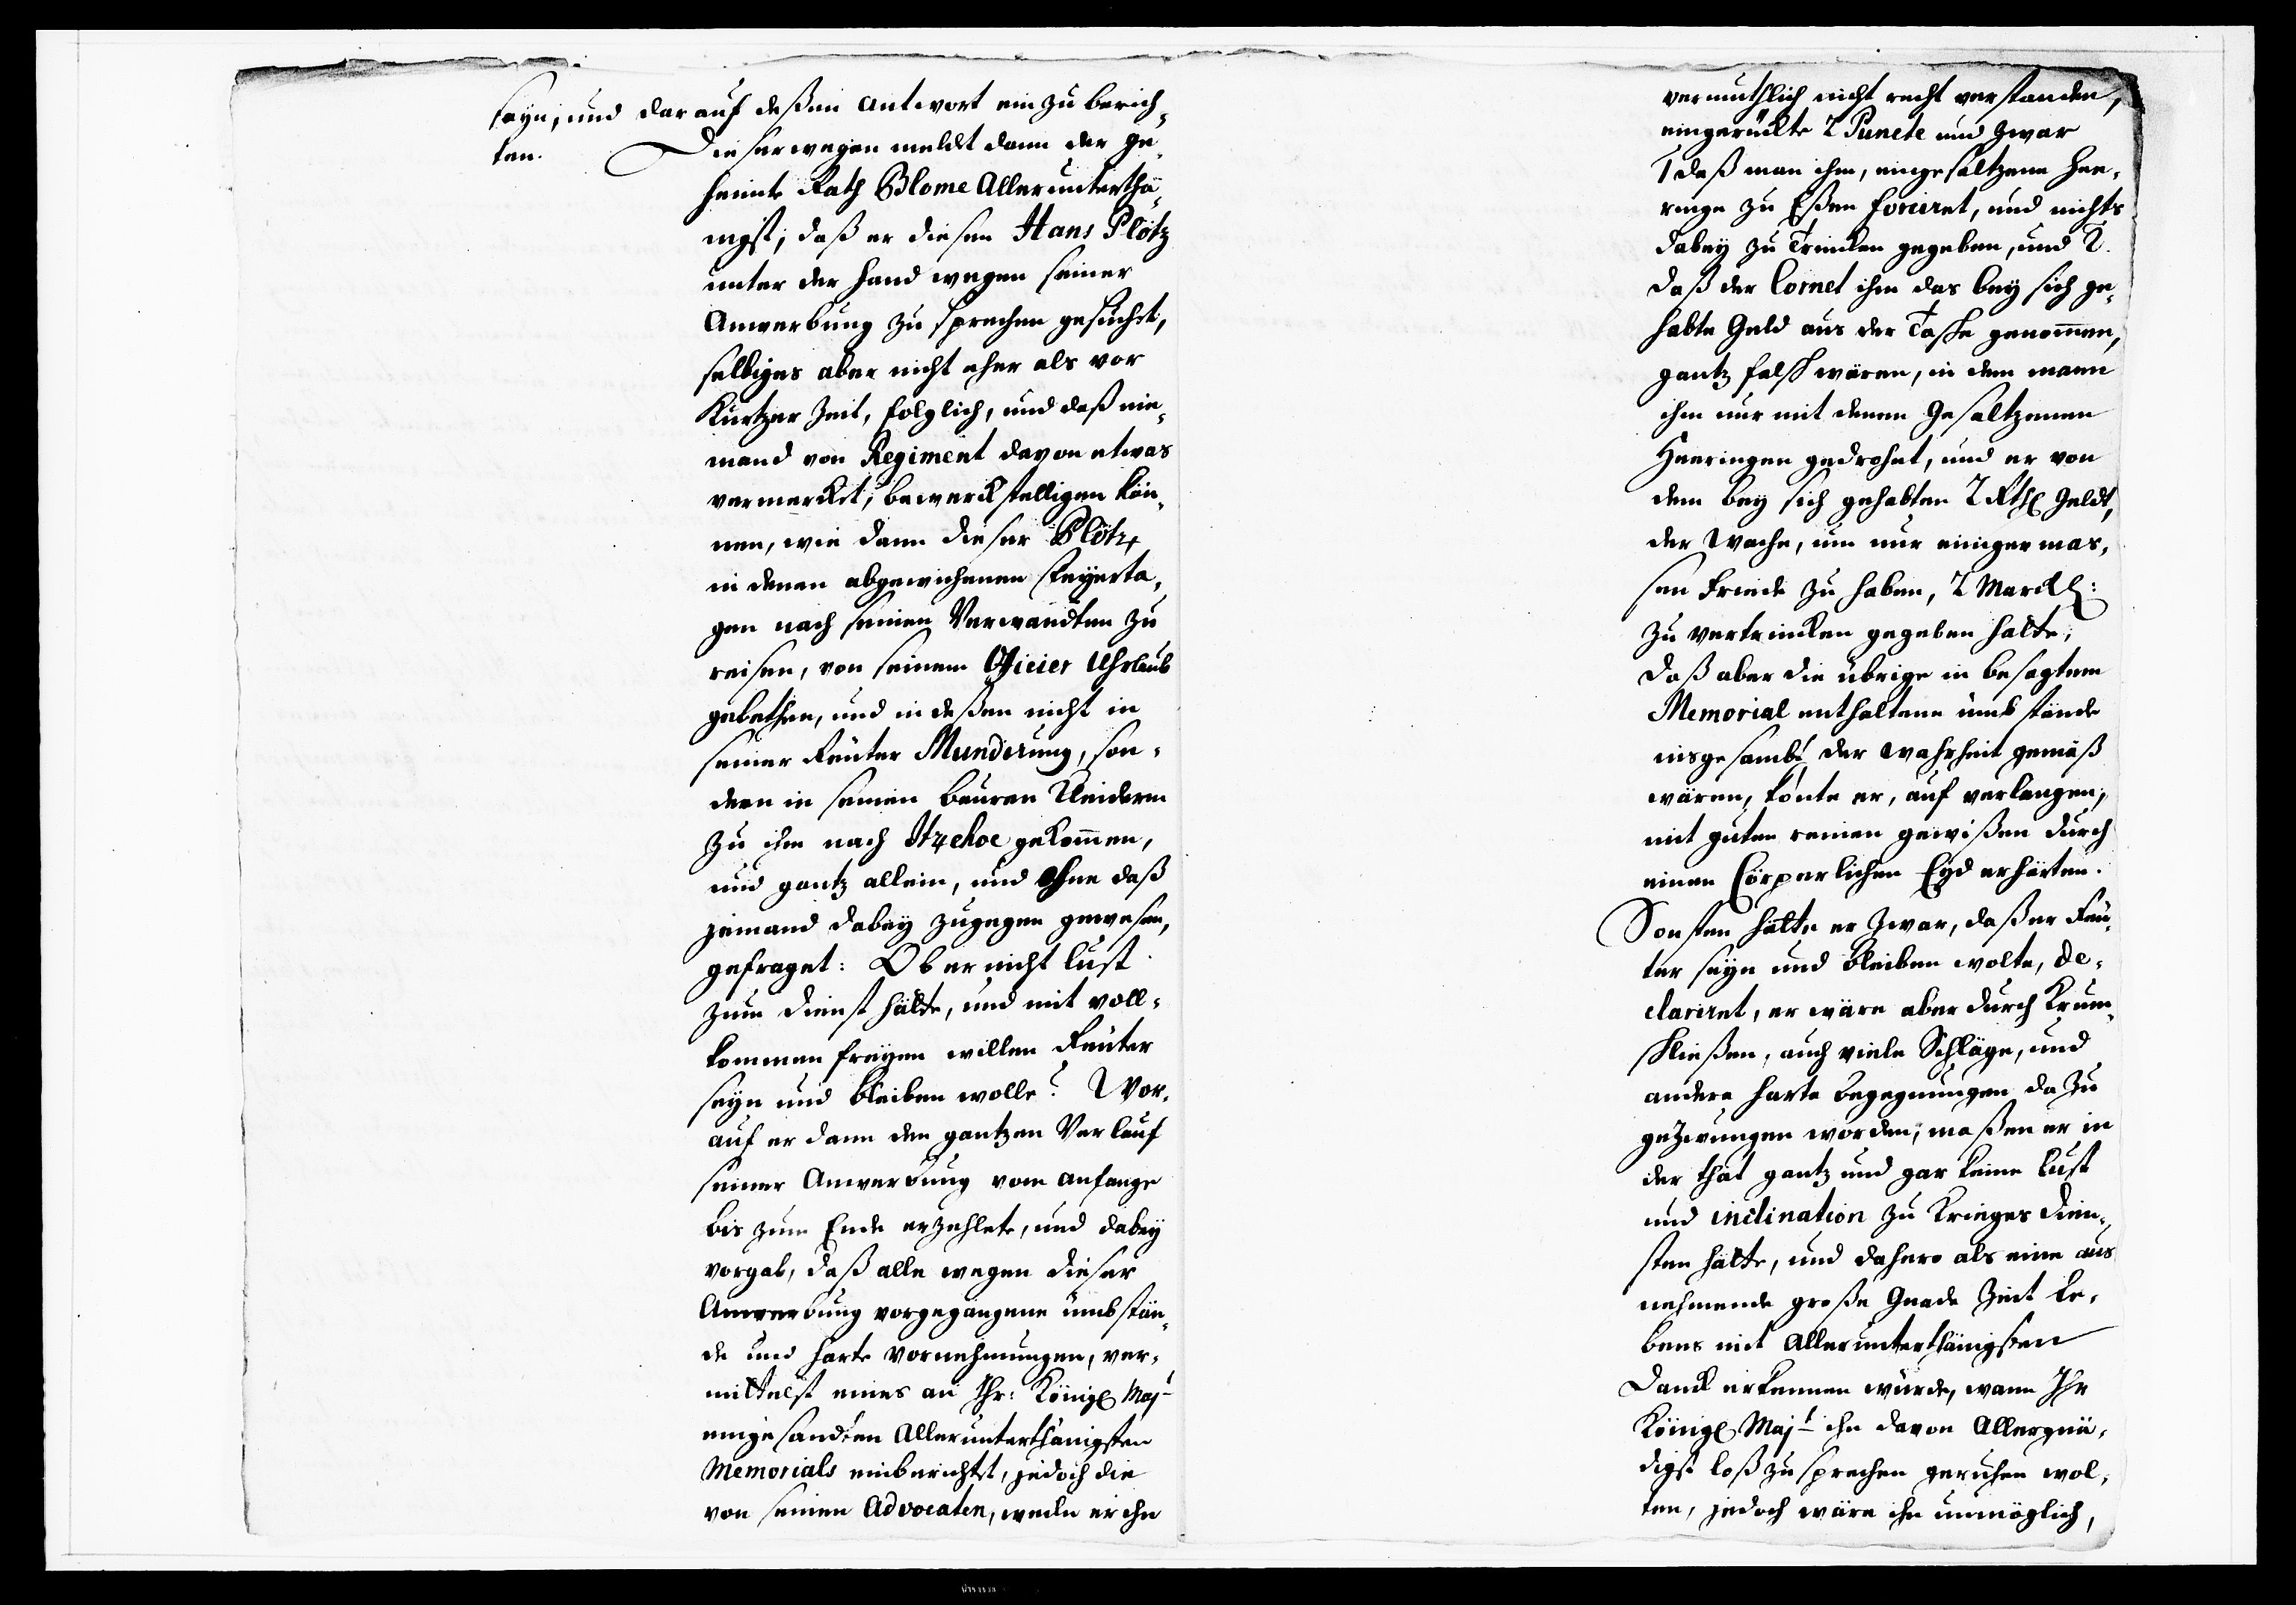 seyn, und darauf deßen Antwort ein zu berich-
ten.
Dieserwegen meldt dann der ge-
heimte Rath Blome Allerunterthä-
nigst, daß er diesen Hans Plötz
unter der Hand wegen seiner
Anwerbung zu sprechen gesuchet,
selbiges aber nicht eher als vor
Kurtzer Zeit, folglich, und daß nie-
mand von Regiment davon etwas
vermercket, bewerckstelligen kön-
nen, wie dann dieser Plötz
in denen abgewichenen Feyerta-
gen nach seinen Verwandten zu
reisen, von seinem Officier Uhrlaub
gebethen, und indeßen nicht in
seiner Reuter Mundirung, son-
dern in seinen Bauren Kleidern
zu ihm nach Itzehoe gekom̄en,
und gantz allein, und ohne daß
jemand dabey zugegen gewesen,
gefraget: Ob er nicht Lust
zum Dienst hätte, und mit voll-
kommen freyen willen Reuter
seyn und bleiben wolle? Wor-
auf er dann den gantzen Verlauf
seiner Anwerbung vom Anfange
bis zum Ende erzehlete, und dabey
vorgab, daß alle wegen dieser
Anwerbung vorgegangene umbstän-
de und harte Vornehmungen, ver-
mittelst eines an Ihr: Königl Majt
eingesandten Allerunterthänigsten
Memorials einberichtet, jedoch die
von seinen Advocaten, weiln er ihn
vermuthlich nicht recht verstanden,
eingerückte 2 Puncte und zwar
1 daß man ihm, eingesaltzene Hee-
ringe zu Eßen forciret, und nichts
dabey zu Trincken gegeben, und 2.
daß der Cornet ihm das bey sich ge-
habte Geld aus der Tasche genom̄en,
gantz falsch wären, in dem mann
ihm nur mit denen Gesaltzenen
Heeringen gedrohet, und er von
dem bey sich gehabten 2 Rthl Geldt,
der Wache, um nur einigermas-
sen Friede zu haben, 2 Marckl:
zu vertrincken gegeben hätte;
Daß aber die übrige in besagtem
Memorial enthaltene umbstände
insgesambt der Wahrheit gemäß
wären, könte er, auf verlangen,
mit guten reinen gewißen durch
einen Cörperlichen Eyd erhärten.
Sonsten hätte er zwar, daß er Reu-
ter seyn und bleiben wolte, de-
clariret, er wäre aber durch Krum-
schließen, auch viele Schläge, und
andere harte begegnungen da zu
gezwungen worden, maßen er in
der that gantz und gar keine Lust
und inclination zu Krieges Dien-
sten hätte, und dahero als eine aus
nehmende große Gnade Zeit Le-
bens mit Allerunterthänigsten
Danck erkennen würde, wann Ihr
Königl Majt ihn davon Allergnä-
digst loß zu sprechen geruhen wol-
ten, jedoch wäre ihn unmöglich,